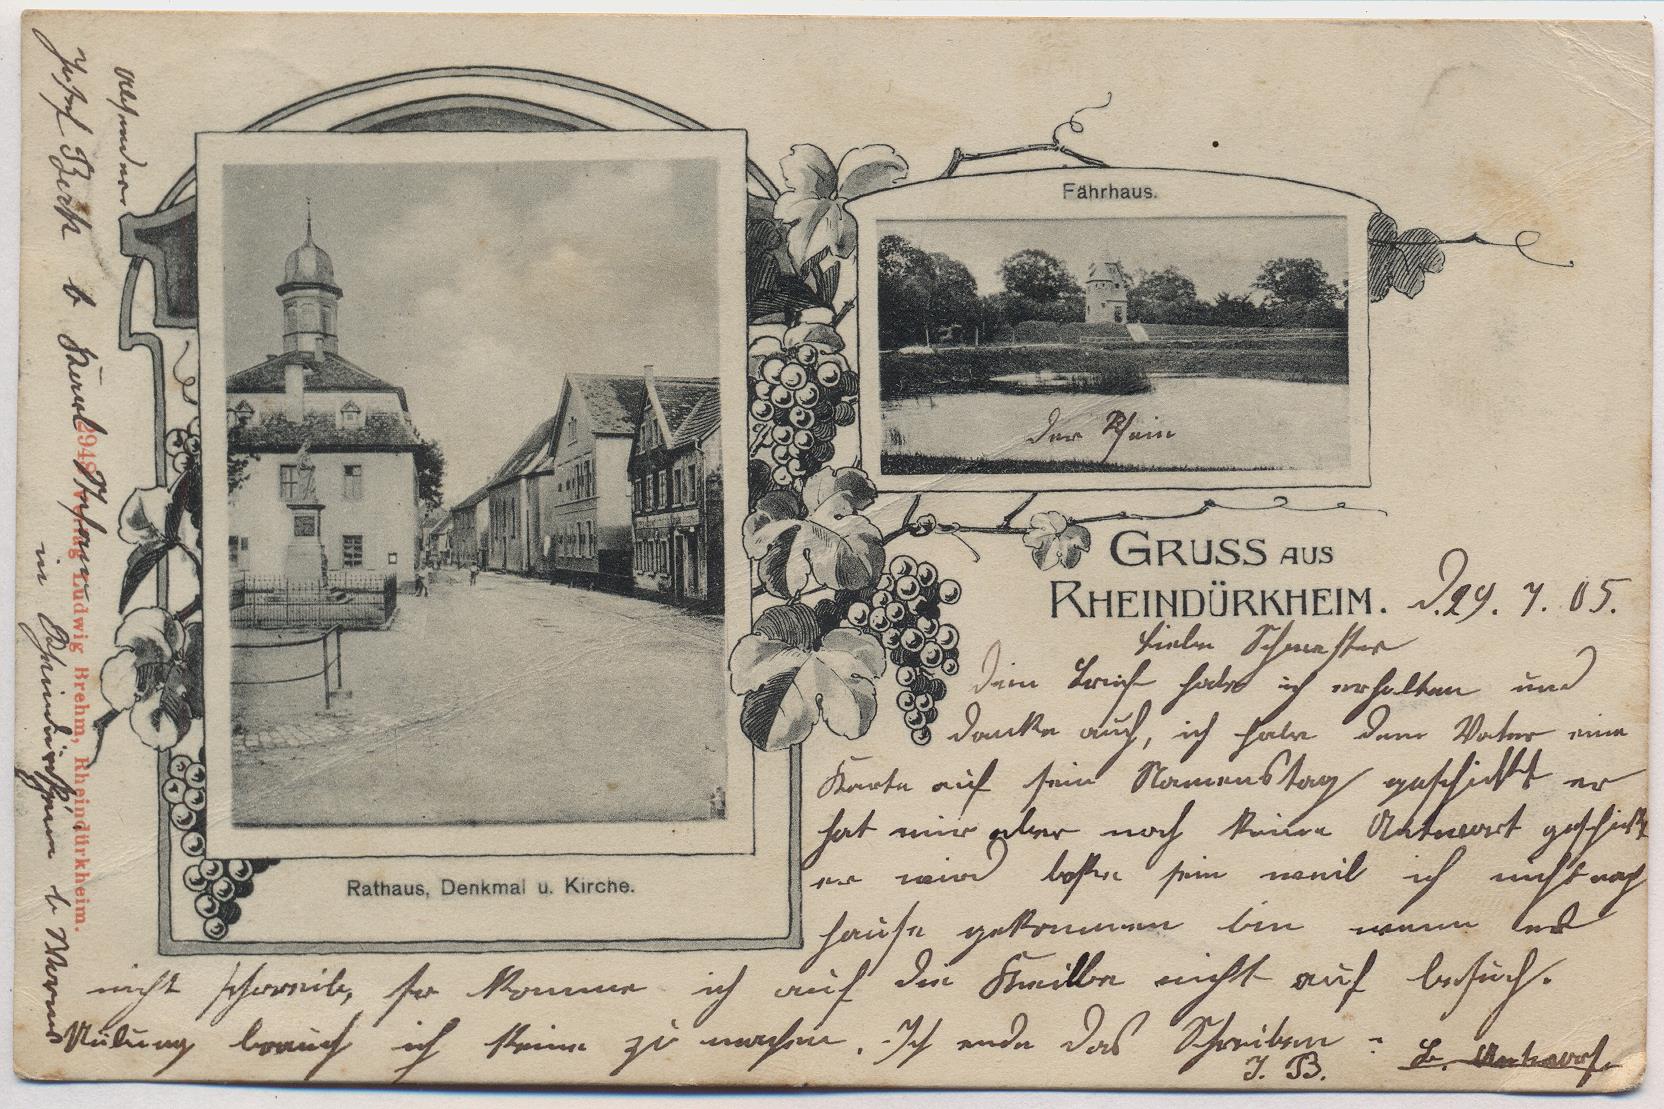 Fährhaus.
Der Rhein
Rathaus, Denkmal u. Kirche.
GRUSS AUS
RHEINDÜRKHEIM. D. 29. 7. 05.
Liebe Schwester
Dein Brief habe ich erhalten und
danke auch, ich habe dem Vater eine
Karte auf sein Namenstag geschickt er
hat mir aber noch keine Antwort geschickt
er wird böse sein weil ich nicht nach
hause gekommen bin wenn er
nicht schreib, so komme ich auf die nicht auf besuch.
brauch ich keine zu machen. Ich ende das Schreiben
J. B. b. Antwort.
Absender
Josef Berk b
in Rheindürkheim b Worms
Verlag Ludwig Brehm, Rheindürkheim.